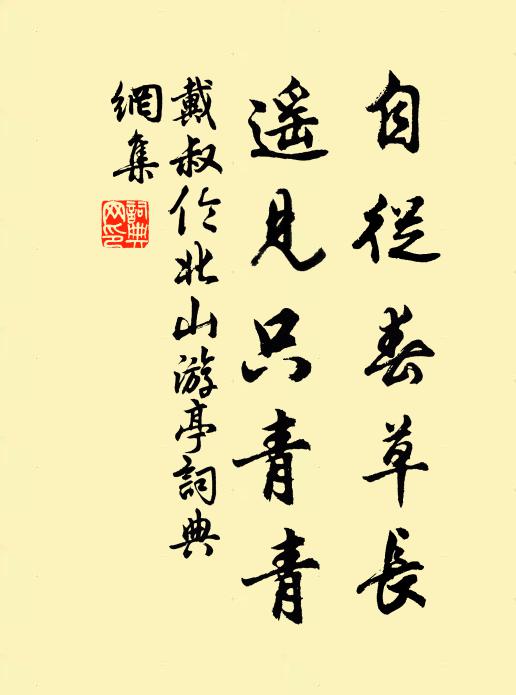 自從春草長
遥見只青青
戴叔伦北山游亭詞典
網集
詞典网印